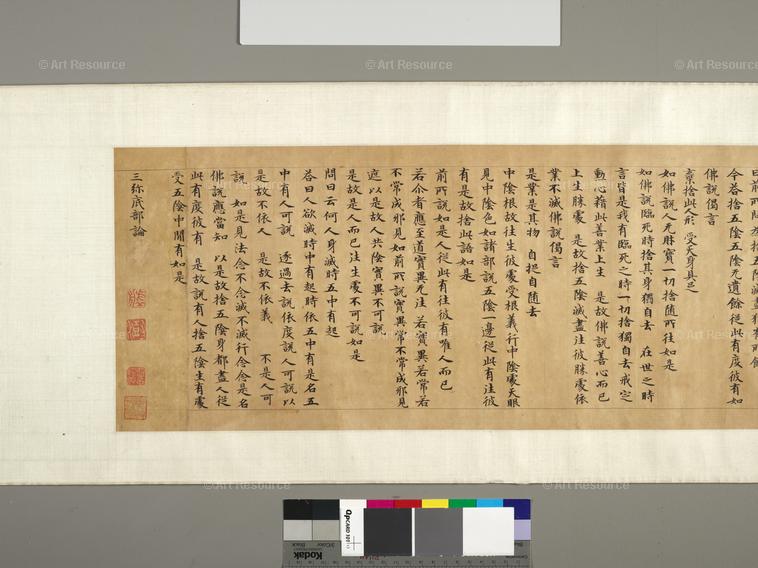 今答捨五陰五陰无遺餘從此有度彼有如
佛說偈言
棄捨此人形 受天身具足
如佛說人无勝寶一切捨隨所往如是
如佛說臨死時捨其身獨自去 在世之時
言皆是我有臨死之時一切捨獨自去戒定
慧心藉此善業上生 是故佛說善心而已
上生勝處 是故捨五陰滅盡往彼勝處依
業不滅佛說偈言
是業是其物 自挹自随去
中陰根故往生彼處受根義行中陰處天眼
見中陰色如諸部說五陰一邊從此有往彼
有是故捨此語如是
前所說如是人從此有往彼有唯人而已
若尒者應至道實異无注 若實異若常若
不常成邪見如前所說實異常不常成邪見
遮以是故人共陰實異不可說
是故是人而已注生處不可說如是
問曰云何人身滅時五中有起
答曰人欲滅時中有起時依五中有是名五
中有人可說 逐過去說依度說人可說以
是故不依人 是故不依義 不是人可
說 如是見法念不念滅不滅行念念是名
佛說應當知 以是故捨五陰身都盡人從
此有度彼有 是故說有人捨五陰生有處
受五陰中間有如是
三弥底部論
© Art Resource
© Art Resource
© Art Resource
© Art Resource
© Art Resource
© Art Resource
© Art Resource
© Art Resource
© Art Resource
QPCARD 101
Kodak